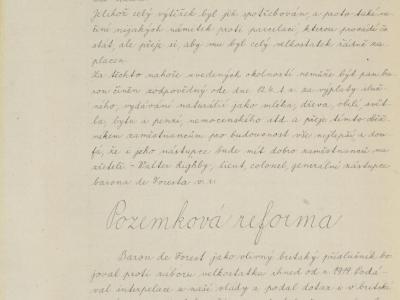 Jelikož celý výtěžek byl již spotřebován, a proto také ne
činí nijakých námitek proti parcelaci, kterou provádí čs
stát, ale přeje si, aby mu byl celý velkostatek řádně za
placen.
Za těchto nahoře uvedených okolností nemůže být pan ba
ron činěn zodpovědný ode dne 12.4. t.r. za výplaty služ
ného, vydávání naturálií jako mléka, dřeva, obilí, svět
la, bytu a penzí, nemocenského atd. a přeje tímto děl
níkům zaměstnancům pro budoucnost vše nejlepší a dou
fá, že i jeho nástupce bude mít dobro zaměstnanců na
zřeteli. - Walter Rigby, lieut. colonel, generální zástupce
barona de Foresta v.r.
Pozemková reforma
Baron de Forest jako vlivný britský příslušník bo
joval proti záboru velkostatku ihned od r. 1919. Podá
val interpelace u naší vlády a podal dotaz i v britské